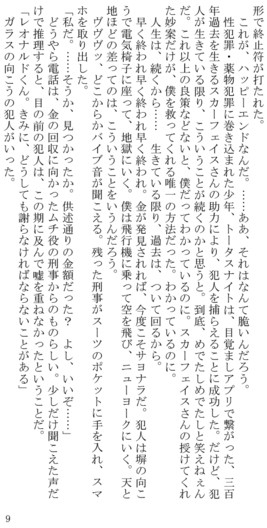 形で終止符が打たれた。
これが、ハッピーエンドなんだ。……ああ、それはなんて脆いんだろう。
性犯罪・薬物犯罪に巻き込まれた少年、トータスナイトは、目覚ましアプリで繋がった、三百
年過去を生きるスカーフェイスさんの助力により、犯人を捕らえることに成功した。だけど、犯
人が生きている限り、こういうことが続くのかと思うと。到底、めでたしめでたしと笑えねぇん
だ。これ以上の良策などないと、僕だってわかっているのに。スカーフェイスさんの授けてくれ
た妙案だけが、僕を救ってくれる唯一の方法だった。わかっているのに。
人生は、続くから……生きている限り、過去は、ついて回るから。
早く終われ早く終われ早く終われ。金が発見されれば、今度こそサヨナラだ。犯人は塀の向こ
うで電気椅子に座って、地獄にいく。僕は飛行機に乗って空を飛び、ニューヨークにいく。天と
地ほどの差ってのは、こういうことをいうんだろう。
ヴヴヴッ、どこからかバイブ音が聞こえる。残った刑事がスーツのポケットに手を入れ、スマ
ホを取り出した。
「私だ。……そうか、見つかったか。供述通りの金額だった？　よし、いいぞ……」
どうやら電話は、金の回収に向かったムチ役の刑事からのものらしい。少しだけ聞こえた声だ
けで推理すると、目の前の犯人は、この期に及んで嘘を重ねなかったということだ。
「レオナルドくん。きみに、どうしても謝らなければならないことがある」
ガラスの向こうの犯人がいった。
9